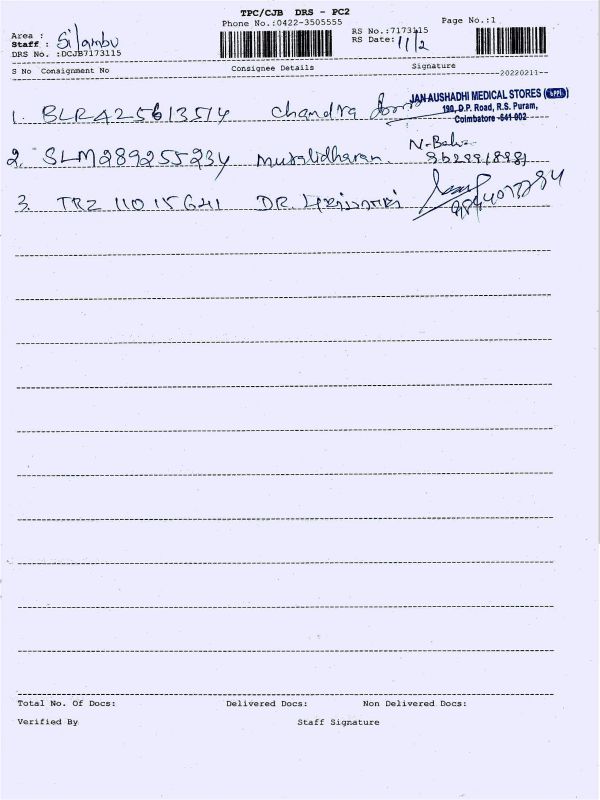 TPC/CJB DRS - PC2
Phone No.:0422-3505555
Page No.:1
Area :
Staff : Silambu
RS No.:7173115
RS Date: 11/2
DRS No. :DCJB7173115
S No Consignment No Consignee Details Signature
20220211
1. BLRA25613514 Chandra
JAN AUSHADHI MEDICAL STORES
190, D.P. Road, R.S. Puram,
Coimbatore -641 002
2. SLM289255234 Muralidharan
3. TRZ 11015641 DR.
Total No. Of Docs: Delivered Docs: Non Delivered Docs:
Verified By Staff Signature